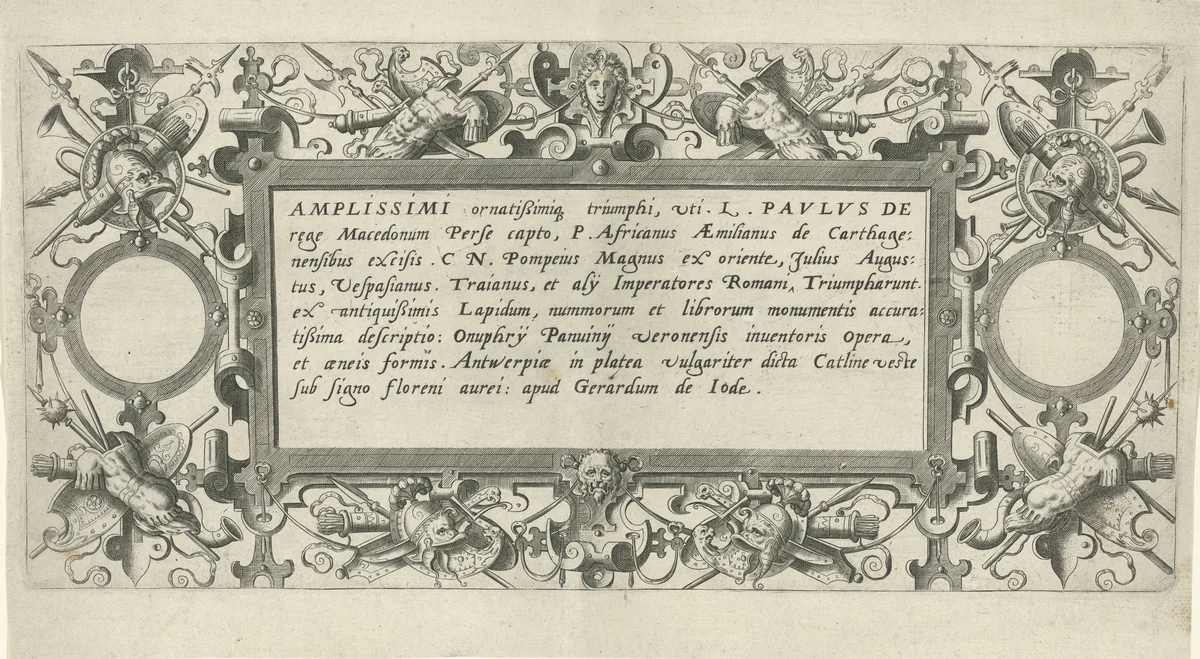 AMPLISSIMI ornatißimiq; triumphi, vti. L. PAVLVS DE
rege Macedonum Perse capto, P. Africanus Æmilianus de Carthage:
nensibus excisis. C N. Pompeius Magnus ex oriente, Julius Augus:
tus, Vespasianus. Traianus, et alÿ Imperatores Romani, Triumpharunt.
ex antiquißimis Lapidum, nummorum et librorum monumentis accura:
tißima descriptio: Onuphrÿ Panuinÿ veronensis inventoris Opera,
et æneis formis. Antwerpiæ in platea vulgariter dicta Catline veste
sub signo floreni aurei: apud Gerardum de Iode.